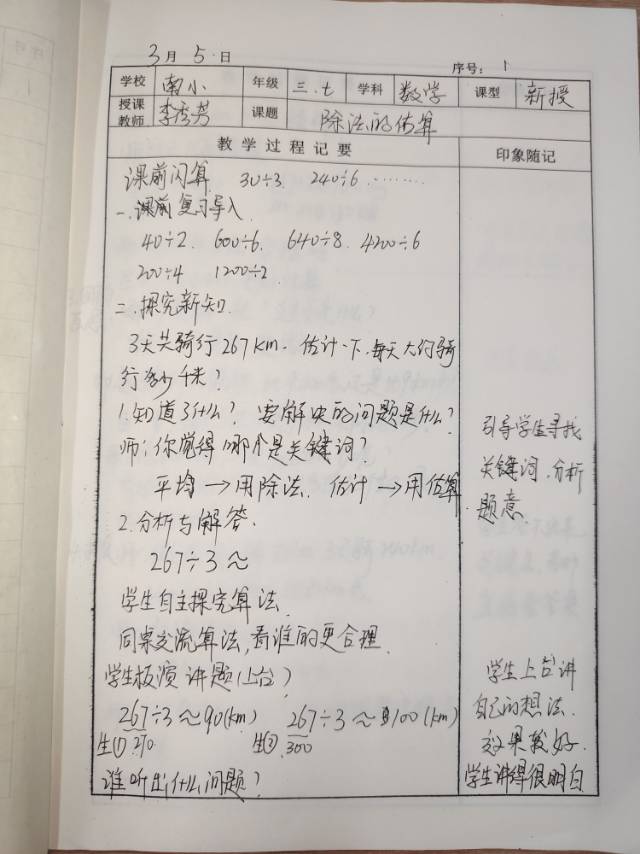 3月5日
序号：1
学校 南小 年级 三.七 学科 数学 课型 新授
授课教师 李秀芳 课题 除法的估算
教学过程记要 印象随记
课前闪算 30÷3 240÷6 ········
一.课前复习导入
40÷2. 600÷6. 640÷8. 4200÷6
200÷4 1200÷2
二.探究新知.
3天共骑行267km. 估计一下.每天大约骑
行多少千米?
1.知道了什么? 要解决的问题是什么?
师:你觉得哪个是关键词?
平均→用除法. 估计→用估算.
2.分析与解答.
267÷3≈
学生自主探究算法.
同桌交流算法,看谁的更合理.
学生板演 讲题(上台)
267÷3≈90(km) 267÷3≈100(km)
生① 270 生② 300
谁听出什么问题?
引导学生寻找
关键词.分析
题意.
学生上台讲
自己的想法.
效果较好.
学生讲得很明白